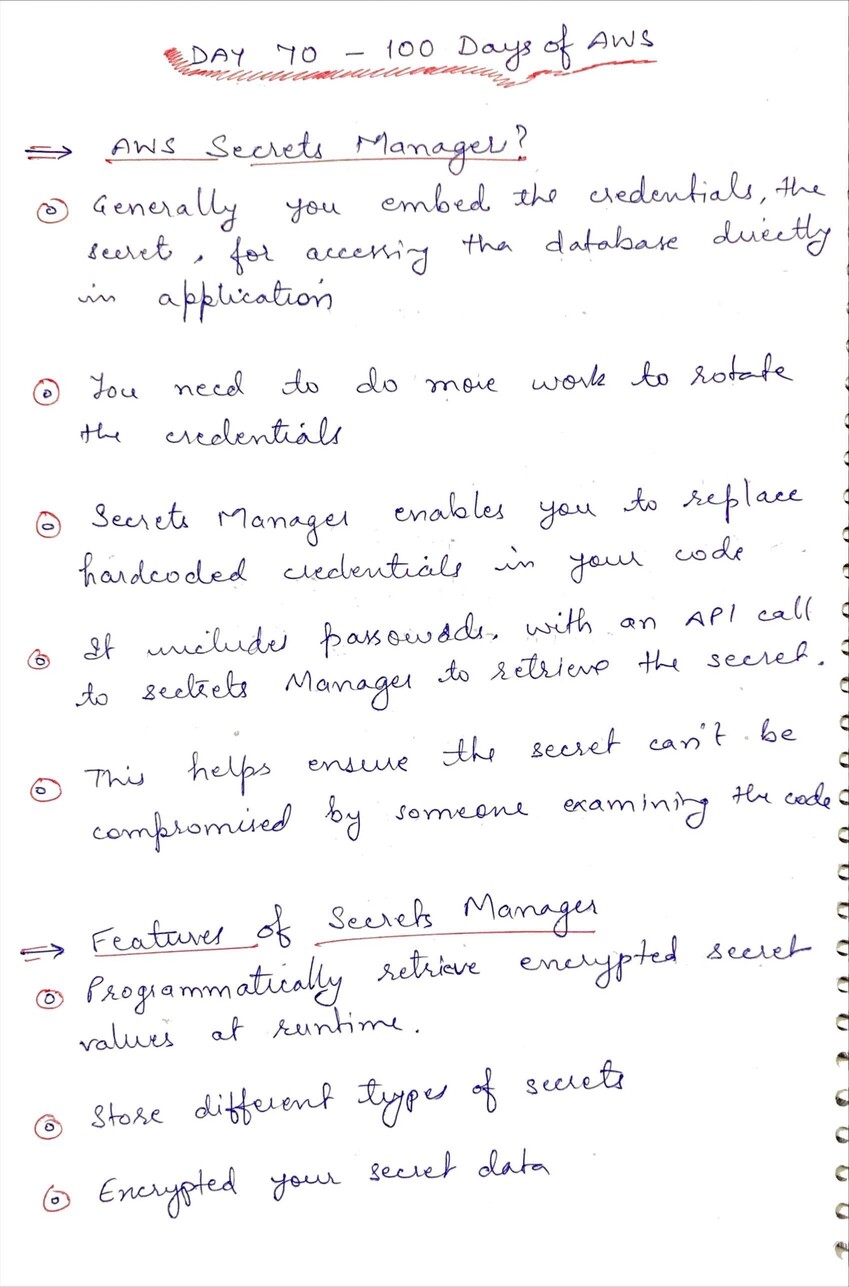 DAY 70 – 100 Days of AWS
⇒ AWS Secrets Manager?
Generally you embed the credentials, the
secret, for accessing the database directly
in application
You need to do more work to rotate
the credentials
Secrets Manager enables you to replace
hardcoded credentials in your code
It includes passowads, with an API call
to sectrets Manager to retrieve the secret.
This helps ensure the secret can't be
compromised by someone examining the code
⇒ Features of Secrets Manager
Programmatically retrieve encrypted secret
values at runtime.
Store different types of secrets
Encrypted your secret data